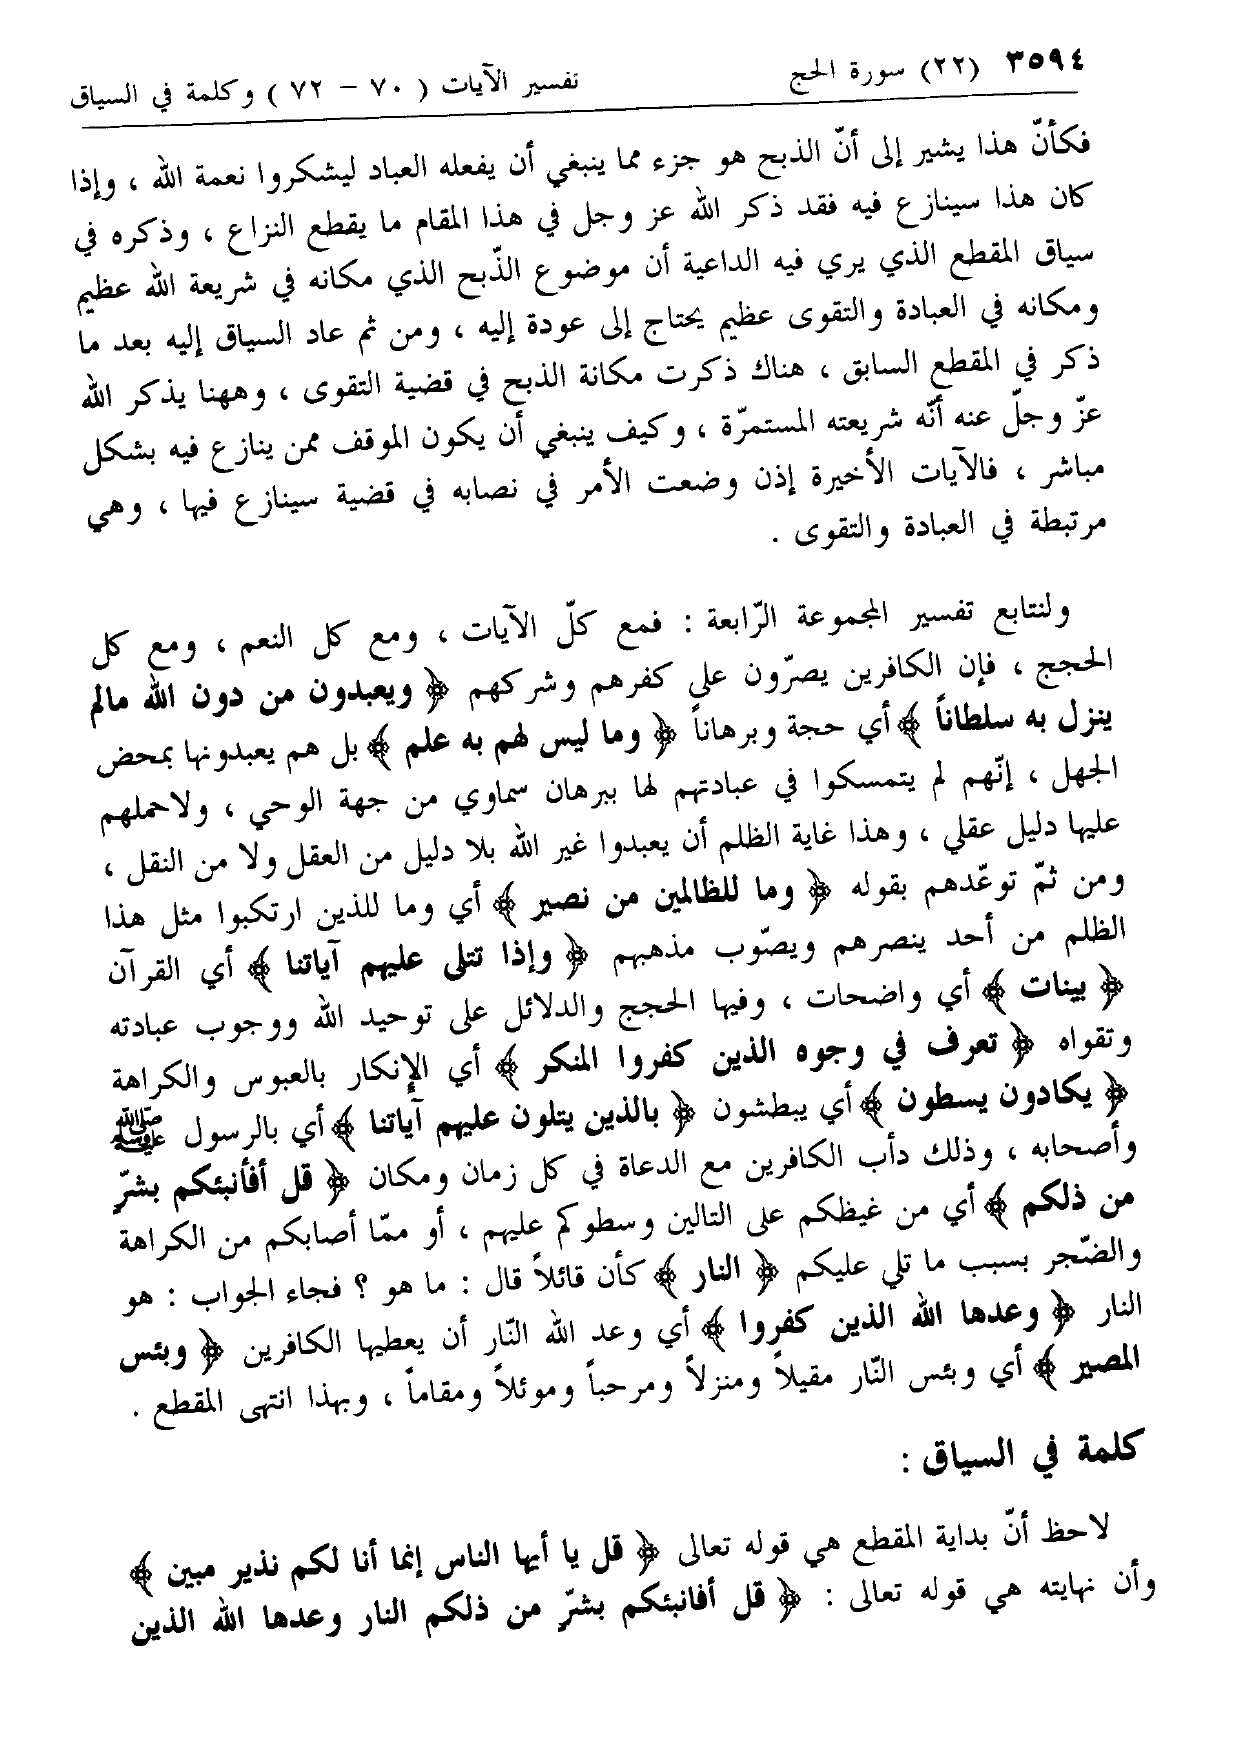 ٣٥٩٤ (٢٢) سورة الحج تفسير الآيات ( ٧٠ – ٧٢ ) وكلمة في السياق
فكأنّ هذا يشير إلى أنّ الذبح هو جزء مما ينبغي أن يفعله العباد ليشكروا نعمة الله ، وإذا
كان هذا سينازع فيه فقد ذكر الله عز وجل في هذا المقام ما يقطع النزاع ، وذكره في
سياق المقطع الذي يري فيه الداعية أن موضوع الذّبح الذي مكانه في شريعة الله عظيم
ومكانه في العبادة والتقوى عظيم يحتاج إلى عودة إليه ، ومن ثم عاد السياق إليه بعد ما
ذكر في المقطع السابق ، هناك ذكرت مكانة الذبح في قضية التقوى ، وههنا يذكر الله
عزّ وجلّ عنه أنّه شريعته المستمرّة ، وكيف ينبغي أن يكون الموقف ممن ينازع فيه بشكل
مباشر ، فالآيات الأخيرة إذن وضعت الأمر في نصابه في قضية سينازع فيها ، وهي
مرتبطة في العبادة والتقوى .
ولنتابع تفسير المجموعة الرّابعة : فمع كلّ الآيات ، ومع كل النعم ، ومع كل
الحجج ، فإن الكافرين يصرّون على كفرهم وشركهم ﴿ ويعبدون من دون الله مالم
ينزل به سلطاناً ﴾ أي حجة وبرهاناً ﴿ وما ليس لهم به علم ﴾ بل هم يعبدونها بمحض
الجهل ، إنّهم لم يتمسكوا في عبادتهم لها ببرهان سماوي من جهة الوحي ، ولاحملهم
عليها دليل عقلي ، وهذا غاية الظلم أن يعبدوا غير الله بلا دليل من العقل ولا من النقل ،
ومن ثمّ توعّدهم بقوله ﴿ وما للظالمين من نصير ﴾ أي وما للذين ارتكبوا مثل هذا
الظلم من أحد ينصرهم ويصّوب مذهبهم ﴿ وإذا تتلى عليهم آياتنا ﴾ أي القرآن
﴿ بينات ﴾ أي واضحات ، وفيها الحجج والدلائل على توحيد الله ووجوب عبادته
وتقواه ﴿ تعرف في وجوه الذين كفروا المنكر ﴾ أي الإنكار بالعبوس والكراهة
﴿ يكادون يسطون ﴾ أي يبطشون ﴿ بالذين يتلون عليهم آياتنا ﴾ أي بالرسول ﷺ
وأصحابه ، وذلك دأب الكافرين مع الدعاة في كل زمان ومكان ﴿ قل أفأنبئكم بشرّ
من ذلكم ﴾ أي من غيظكم على التالين وسطوكم عليهم ، أو ممّا أصابكم من الكراهة
والضّجر بسبب ما تلي عليكم ﴿ النار ﴾ كأن قائلاً قال : ما هو ؟ فجاء الجواب : هو
النار ﴿ وعدها الله الذين كفروا ﴾ أي وعد الله النّار أن يعطيها الكافرين ﴿ وبئس
المصير ﴾ أي وبئس النّار مقيلاً ومنزلاً ومرحباً وموئلاً ومقاماً ، وبهذا انتهى المقطع .
كلمة في السياق :
لاحظ أنّ بداية المقطع هي قوله تعالى ﴿ قل يا أيها الناس إنما أنا لكم نذير مبين ﴾
وأن نهايته هي قوله تعالى : ﴿ قل أفانبئكم بشرّ من ذلكم النار وعدها الله الذين